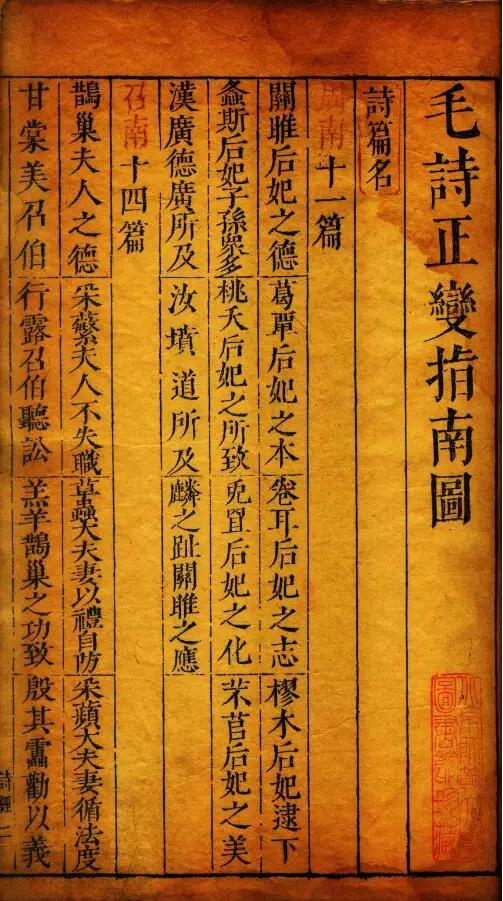 毛詩正變指南圖
詩篇名
周南十一篇
關雎后妃之德 葛覃后妃之本 卷耳后妃之志 樛木后妃逮下
螽斯后妃子孫眾多 桃夭后妃之所致 兎罝后妃之化 芣苢后妃之美
漢廣德廣所及 汝墳道所及 麟之趾關雎之應
召南十四篇
鵲巢夫人之德 采蘩夫人不失職 草蟲大夫妻以禮自防 采蘋大夫妻循法度
甘棠美召伯 行露召伯聽訟 羔羊鵲巢之功致 殷其靁勸以義
詩經二